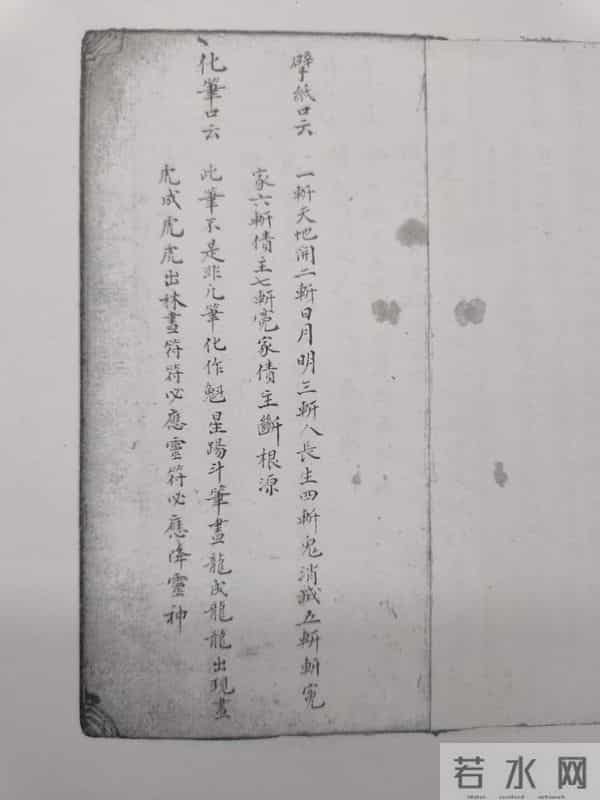 擘紙口云 一斬天地開二斬日月明三斬人長生四斬鬼消滅五斬斬寃
家六斬債主七斬寃家債主斷根源
化筆口云 此筆不是非凡筆化作魁星踢斗筆畫龍成龍龍出現畫
虎成虎虎出林畫符符必應靈符必應降靈神
若水网